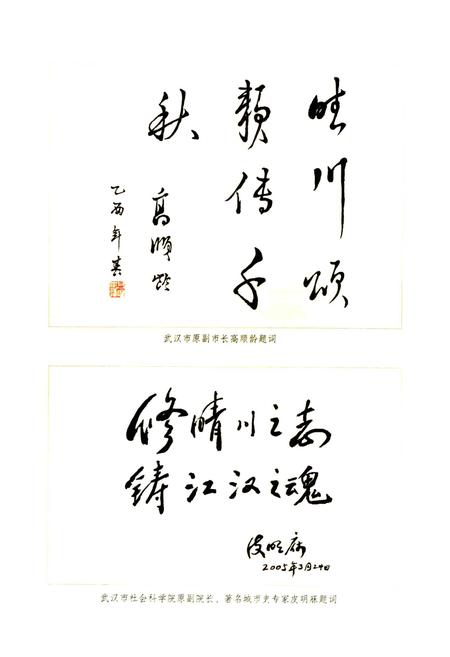 晴川颂
頼传千
秋
高顺龄
乙酉年春
武汉市原副市长高顺龄题词
修晴川之志
铸江汉之魂
皮明庥
2005年3月24日
武汉市社会科学院原副院长、著名城市史专家皮明庥题词